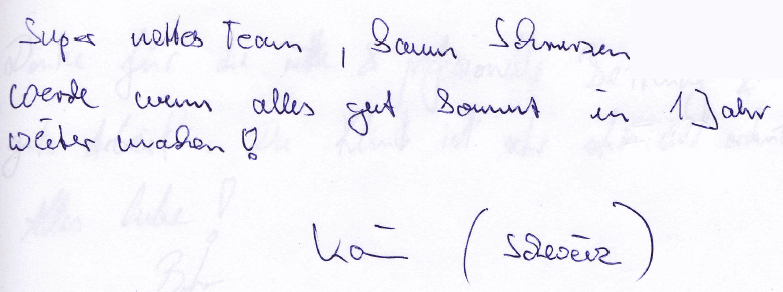 Super nettes Team, kaum Schmerzen
werde wenn alles gut kommt in 1 Jahr
weiter machen!
Kai (Schweiz)